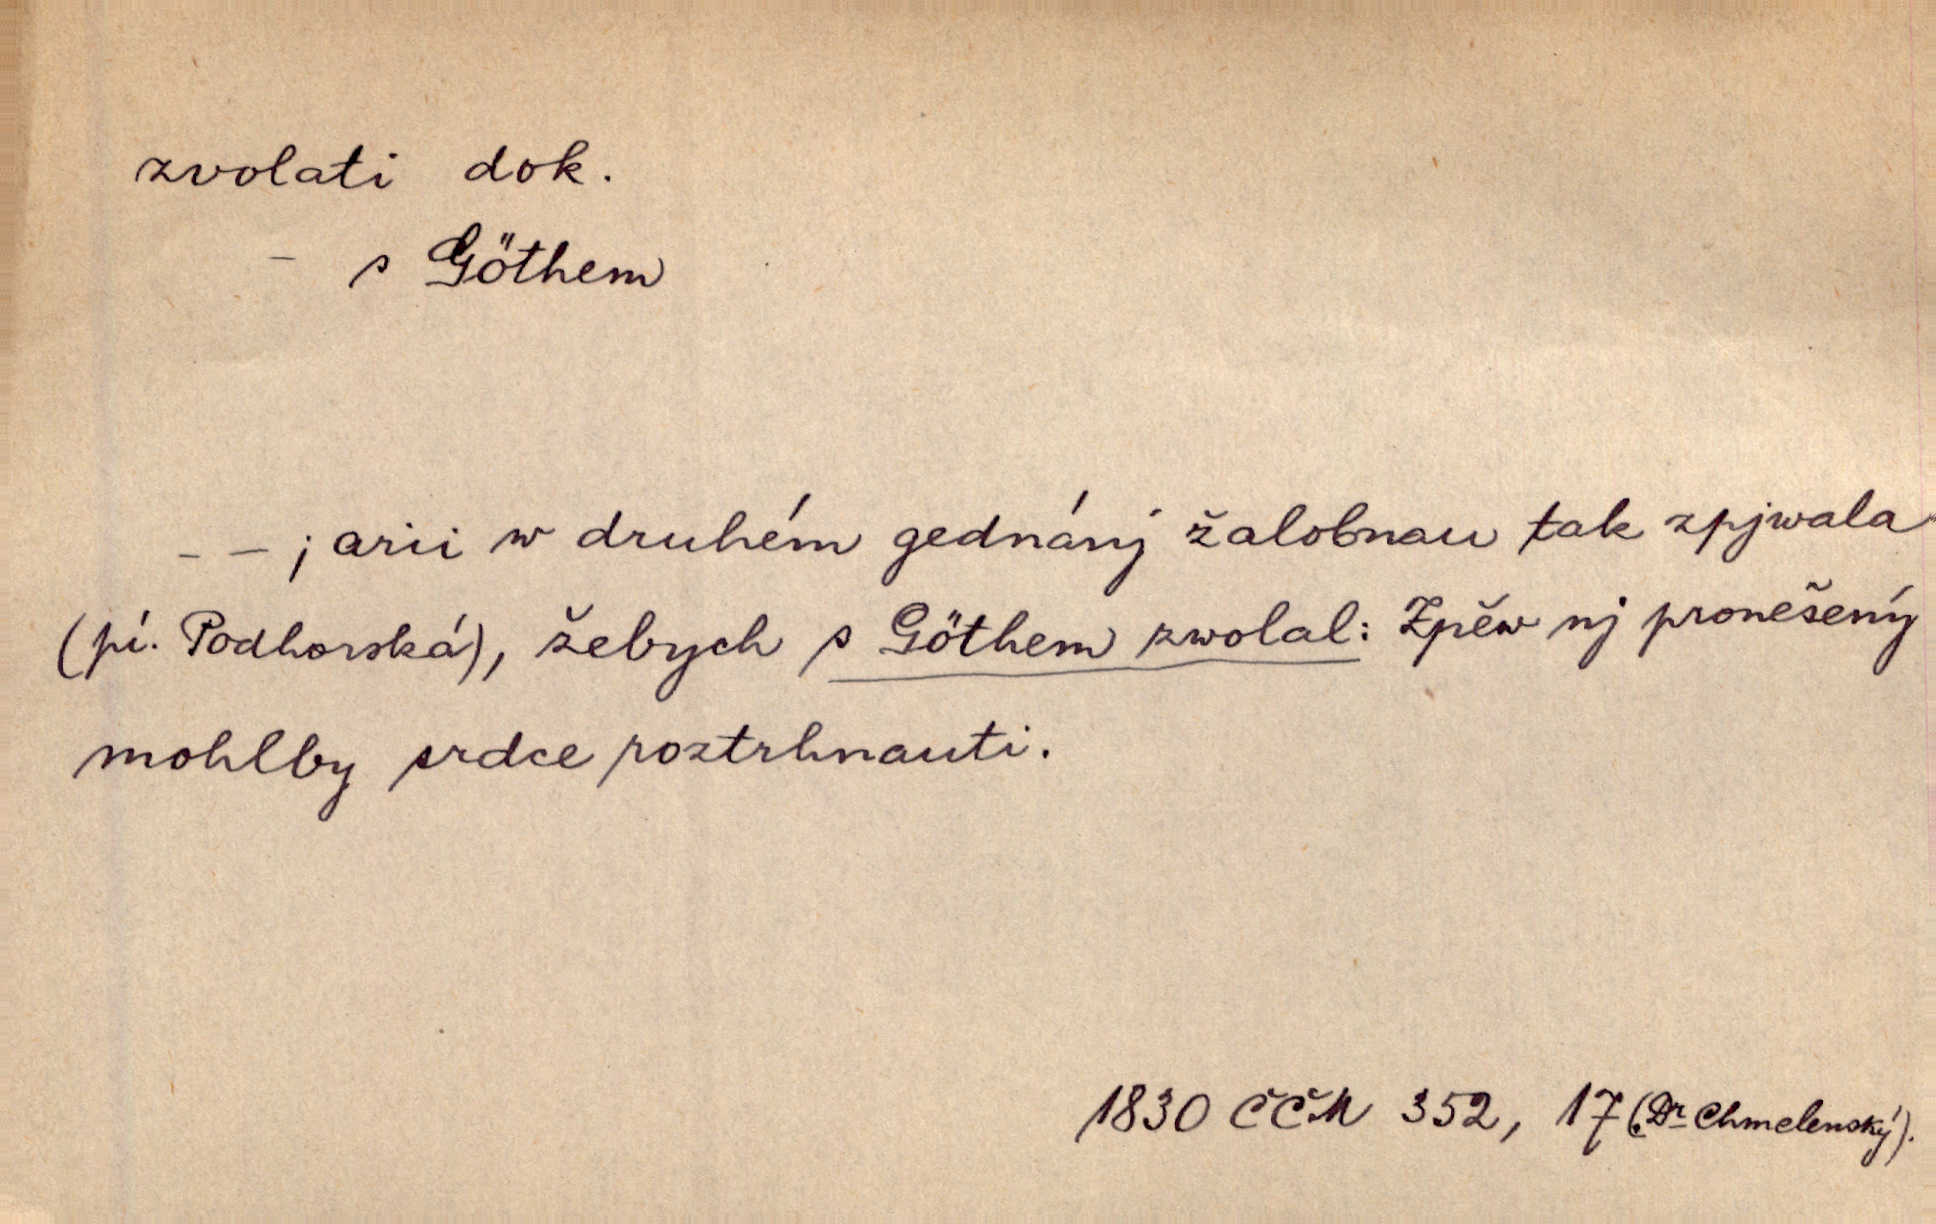 zvolati dok.
– s Göthem
– – ; arii w druhém gednánj žalobnau tak zpjwala
(pí. Podhorská), žebych s Göthem zwolal: Zpěw nj pronešený
mohlby srdce roztrhnauti.
1830 ČČM 352, 17 (Dr Chmelenský).